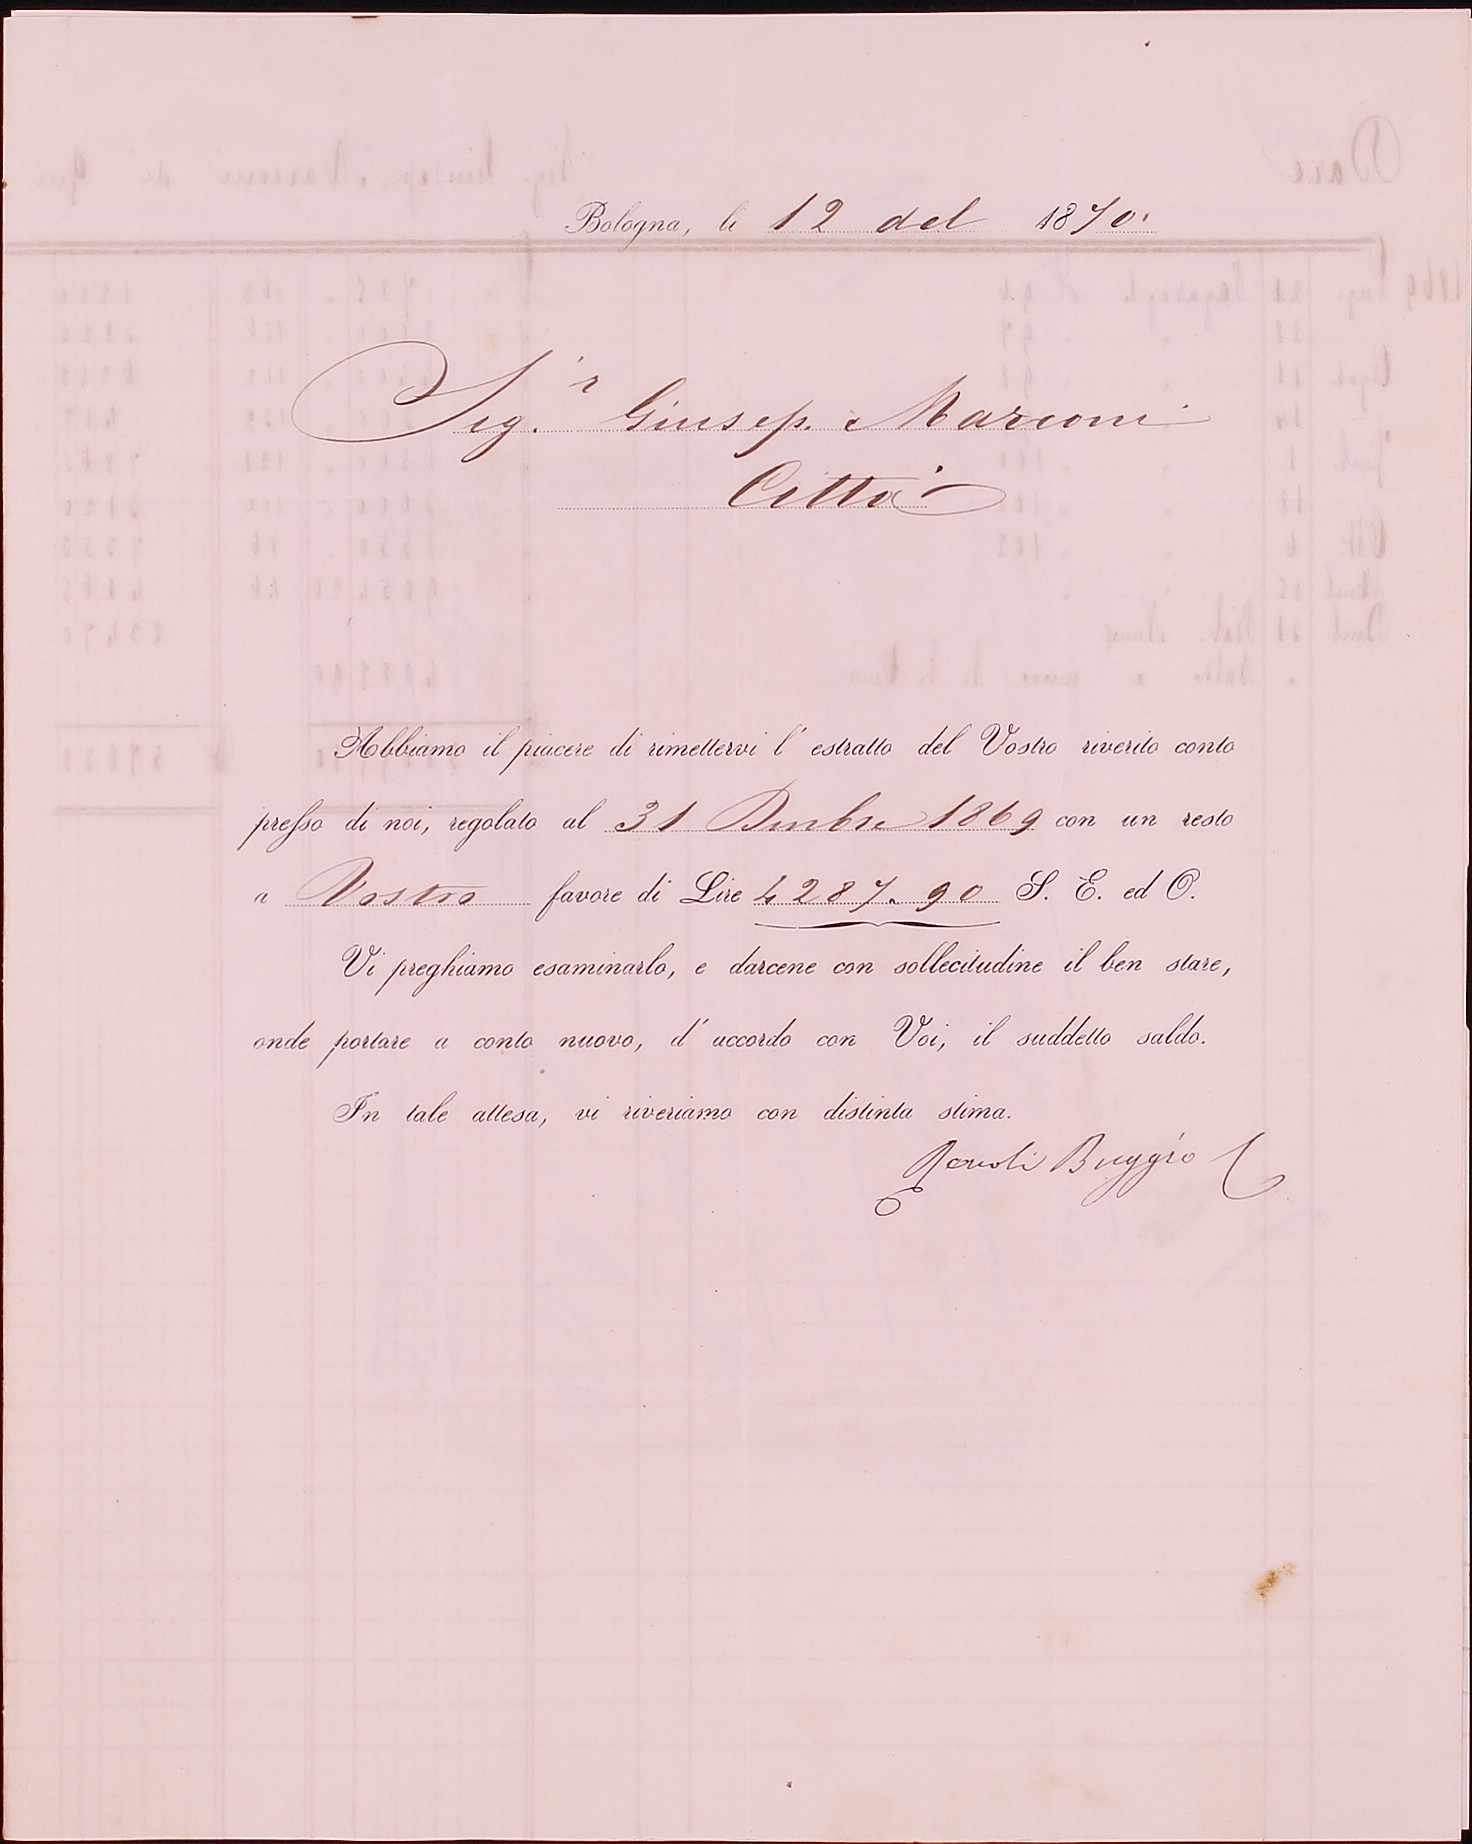 Bologna, li 12 del 1870.
Sig.r Giusep. Marconi
Città
Abbiamo il piacere di rimettervi l' estratto del Vostro riverito conto
presso di noi, regolato al 31 Dmbre 1869 con un resto
a Vostro favore di Lire 4287.90 S. E. ed O.
Vi preghiamo esaminarlo, e darcene con sollecitudine il ben stare,
onde portare a conto nuovo, d' accordo con Voi, il suddetto saldo.
In tale attesa, vi riveriamo con distinta stima.